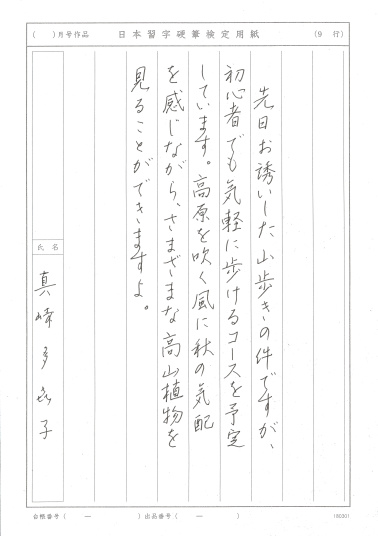 ( )月号作品 日本習字硬筆検定用紙 (9 行)
先日お誘いした山歩きの件ですが、
初心者でも気軽に歩けるコースを予定
しています。高原を吹く風に秋の気配
を感じながら、さまざまな高山植物を
見ることができますよ。
氏名
真峰多恵子
会帳番号( ー )出品番号( ー )
180301